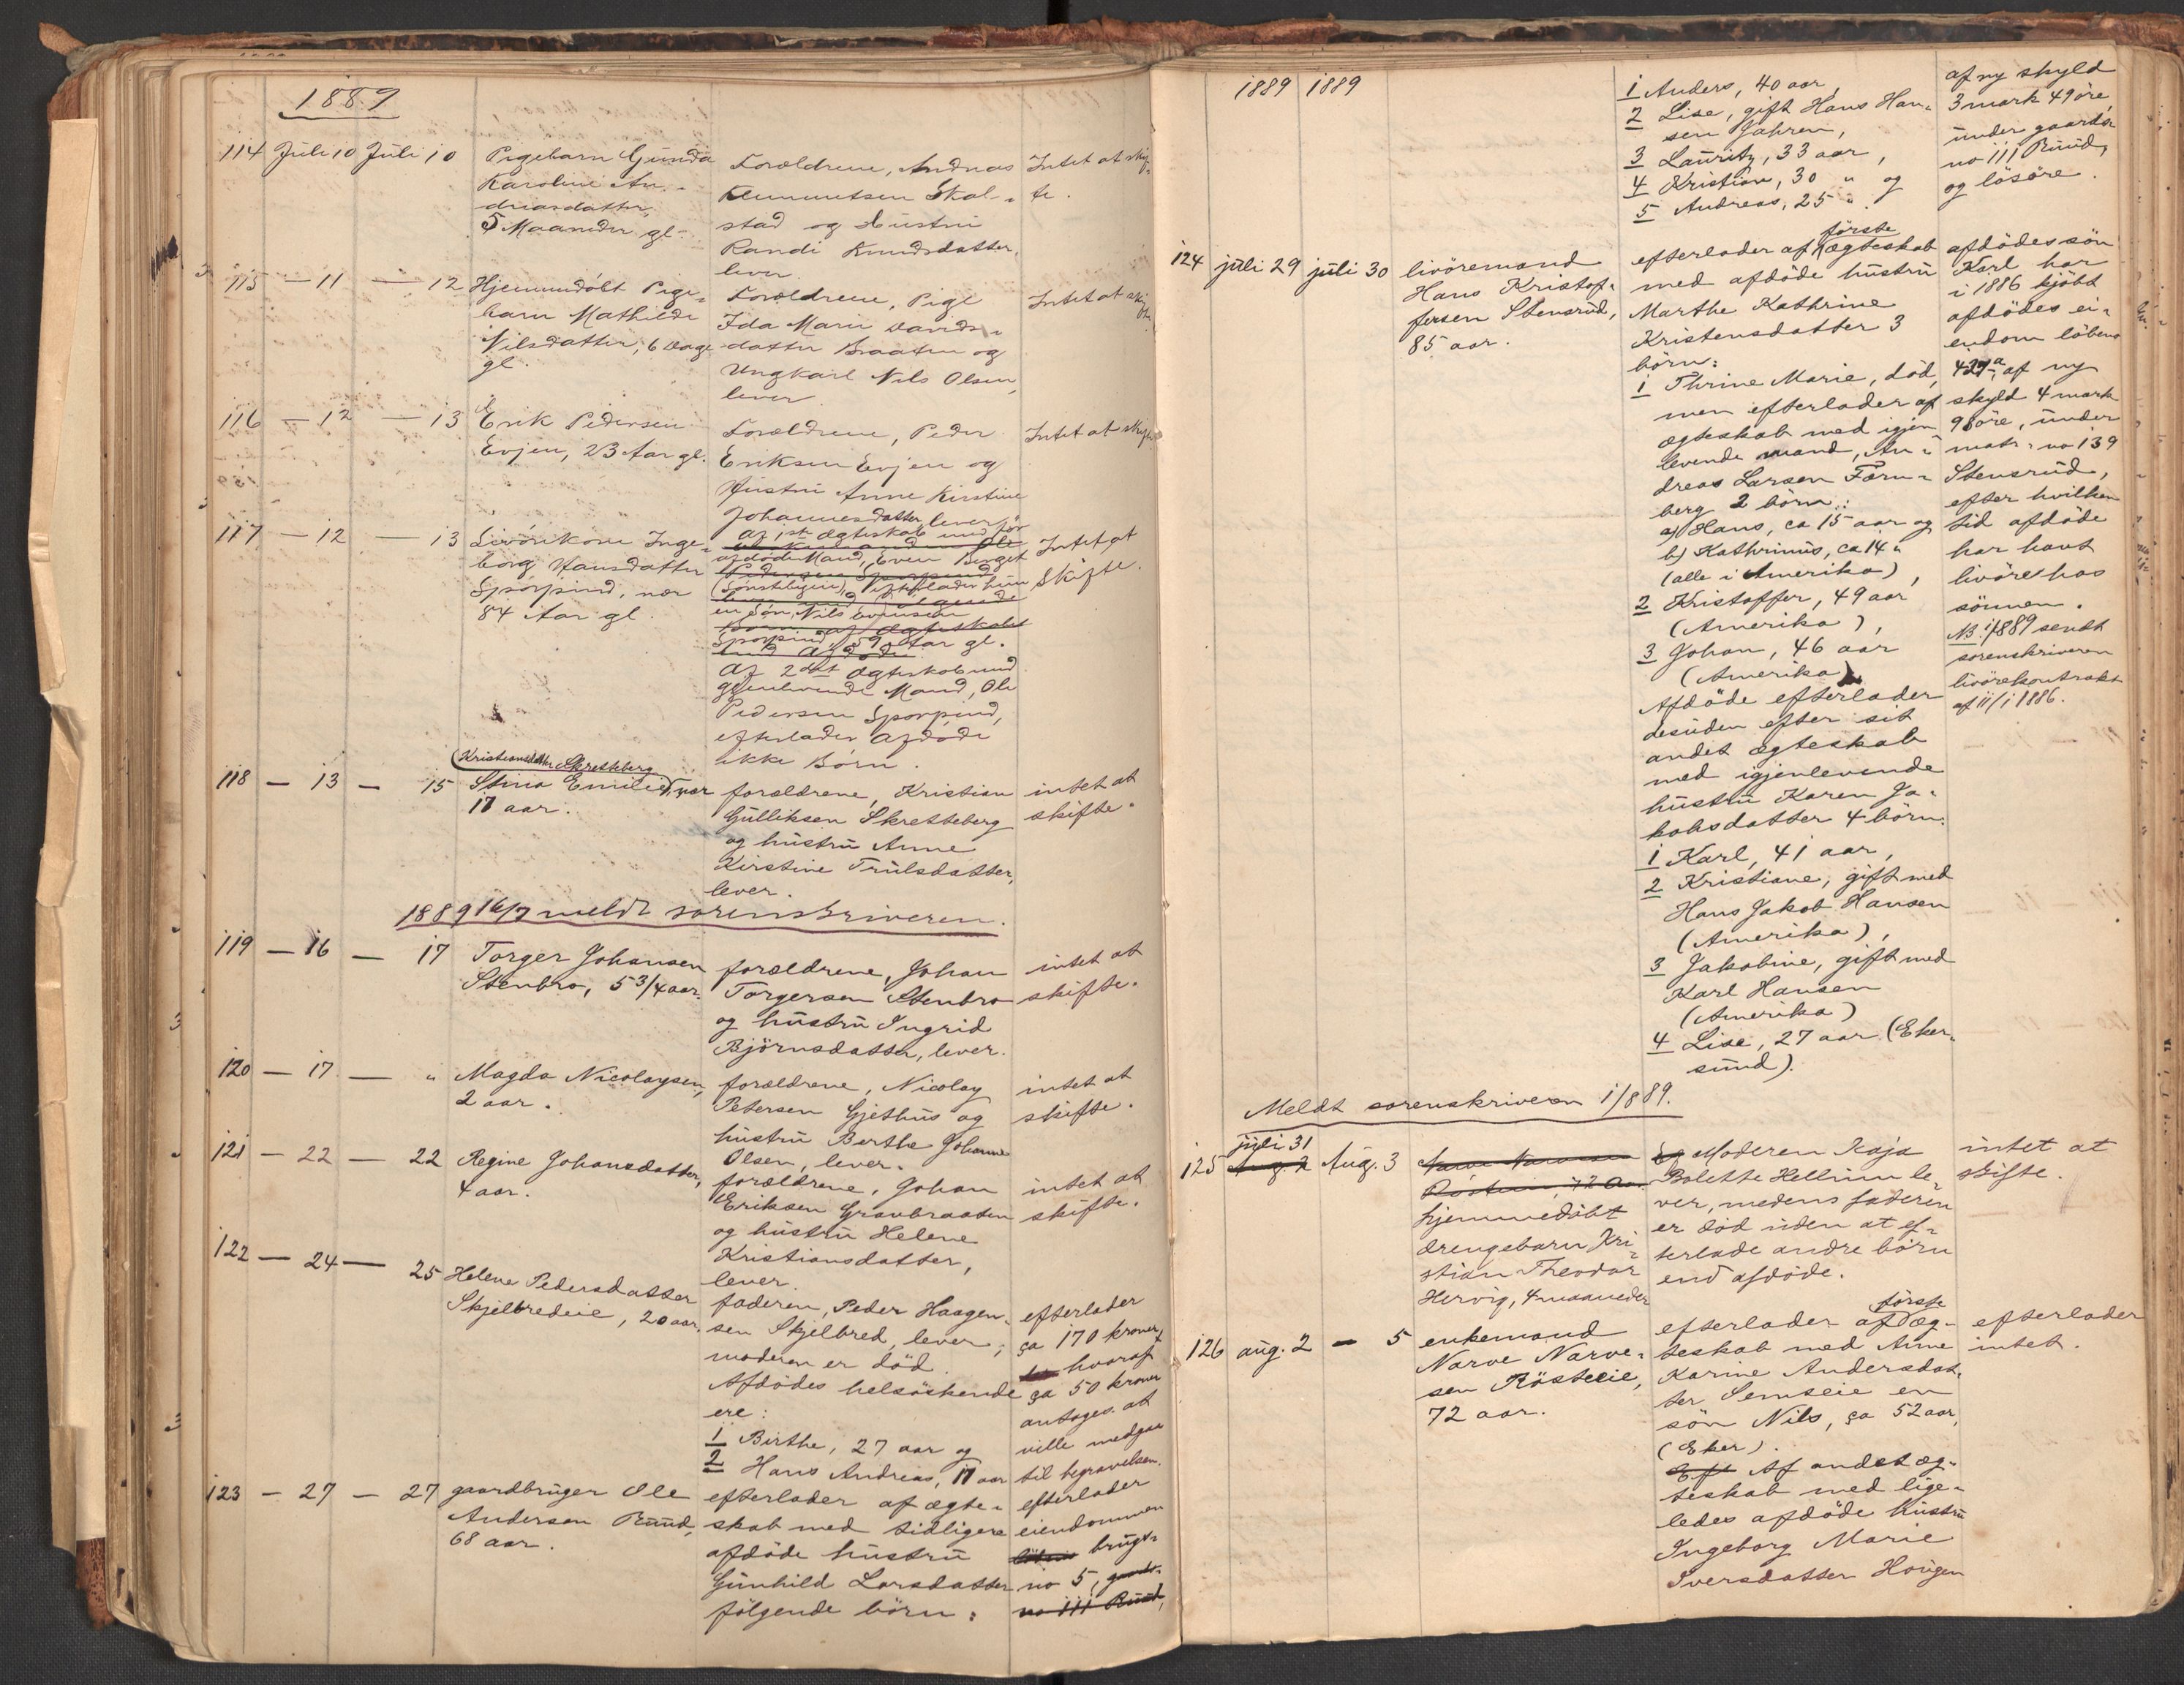 1889
114 Juli 10 Juli 10
Pigebarn Gunda
Karoline An-
dreasdatter,
5 Maaneder gl.
Forældrene, Andreas
Klemmetsen Skal-
stad og Hustru
Randi Knudsdatter,
lever.
Intet at skif-
te.
115 — 11 — 12
Hjemmedøbt Pige-
barn Mathilde
Nilsdatter, 6 Dage
gl.
Forældrene, Pige
Ida Marie Davids-
datter Braaten og
Ungkarl Nils Olsen,
lever.
Intet at skif-
te.
116 — 12 — 13
Erik Pedersen
Evjen, 23 Aar gl.
Forældrene, Peder
Eriksen Evjen og
Hustru Anne Kirstine
Johannesdatter, lever.
Intet at skifte
117 — 12 — 13
Livörekone Inge-
borg Hansdatter
Sporpind, nær
84 Aar gl.
Af 1ste Ægteskab med før
afdøde Mand, Even Berget
efterlader hun
en Søn, Nils Evensen
Sporpind, 59 Aar gl.
Af 2det Ægteskab med
gjenlevende Mand, Ole
Pedersen Sporpind,
efterlader Afdøde
ikke Børn.
Intet at
Skifte.
118 — 13 — 15
(Kristiansdatter Skretteberg
Stina Emilie, nær
17 aar.
forældrene, Kristian
Gulliksen Skretteberg
og hustru Anne
Kirstine Trulsdatter,
lever.
intet at
skifte.
1889 16/7 meldt sorenskriveren.
119 — 16 — 17
Torger Johansen
Stenbro, 5 3/4 aar.
forældrene, Johan
Torgersen Stenbro
og hustru Ingrid
Björnsdatter, lever.
intet at
skifte.
120 — 17 — "
Magda Nicolaysen,
2 aar.
forældrene, Nicolay
Petersen Gjethus og
hustru Berthe Johanne
Olsen, lever.
intet at
skifte.
121 — 22 — 22
Regine Johansdatter,
4 aar.
forældrene, Johan
Eriksen Gravbraaten
og hustru Helene
Kristiansdatter,
lever.
intet at
skifte.
122 — 24 — 25
Helene Pedersdatter
Skjelbredeie, 20 aar.
faderen, Peder Haagen-
sen Skjelbred, lever;
moderen er död.
Afdödes helsöskende
ere:
1 Birthe, 27 aar og
2 Hans Andreas, 17 aar
efterlader
ca 170 kroner,
hvoraf
ca 50 kroner
antages at
ville medgaa
til begravelsen.
123 — 27 — 27
gaardbruger Ole
Andersen Ruud,
68 aar.
efterlader af ægte-
skab med tidligere
afdöde hustru
Gunhild Larsdatter
fölgende börn:
efterlader
eiendommen
löben brugs-
no 5, gaards-
no 111 Ruud,
1889 1889
1 Anders, 40 aar,
2 Lise, gift Hans Han-
sen Jahren,
3 Lauritz, 33 aar,
4 Kristian, 30 " og
5 Andreas, 25 ".
af ny skyld
3 mark 49 öre,
under gaards-
no 111 Ruud,
og lösöre.
124 juli 29 juli 30
livöremand
Hans Kristof-
fersen Stensrud,
85 aar.
efterlader af förste ægteskab
med afdöde hustru
Marthe Kathrine
Kristensdatter 3
börn:
1 Thrine Marie, död,
men efterlader af
ægteskab med igjen-
levende mand, An-
dreas Larsen Forn-
berg 2 börn:
a) Hans, ca 15 aar og
b) Kathrinus, ca 14 "
(alle i Amerika),
2 Kristoffer, 49 aar
(Amerika),
3 Johan, 46 aar
(Amerika)
Afdöde efterlader
desuden efter sit
andet ægteskab
med igjenlevende
hustru Karen Ja-
kobsdatter 4 börn:
1 Karl, 41 aar,
2 Kristiane, gift med
Hans Jakob Hansen
(Amerika),
3 Jakobine, gift med
Karl Hansen
(Amerika)
4 Lise, 27 aar (Eker-
sund).
afdödes sön
Karl har
i 1886 kjöbt
afdödes ei-
endom löbeno
427a, af ny
skyld 4 mark
98 öre, under
matr. no 139
Stensrud,
efter hvilken
tid afdöde
har havt
livöre hos
sönnen.
NB 1/8 89 sendt
sorenskriveren
livörekontrakt
af 11/1 1886.
Meldt sorenskriveren 1/8 89.
125 juli 31
Aug. 2 Aug. 3
Narve Narvesen
Rösteeie, 72 aar
hjemmedöbt
drengebarn Kri-
stian Theodor
Hervig, 4 maaneder
Moderen Kaja
Bolette Hellnim le-
ver, medens faderen
er död uden at ef-
terlade andre börn
end afdöde.
intet at
skifte.
126 aug. 2 — 5
enkemand
Narve Narve-
sen Rösteeie,
72 aar.
efterlader af förste æg-
teskab med Anne
Karine Andersdat-
ter Semseie en
sön Nils, ca 52 aar,
(Eker).
Eft Af andet æg-
teskab med lige-
ledes afdöde hustru
Ingeborg Marie
Iversdatter Hougen
efterlader
intet.